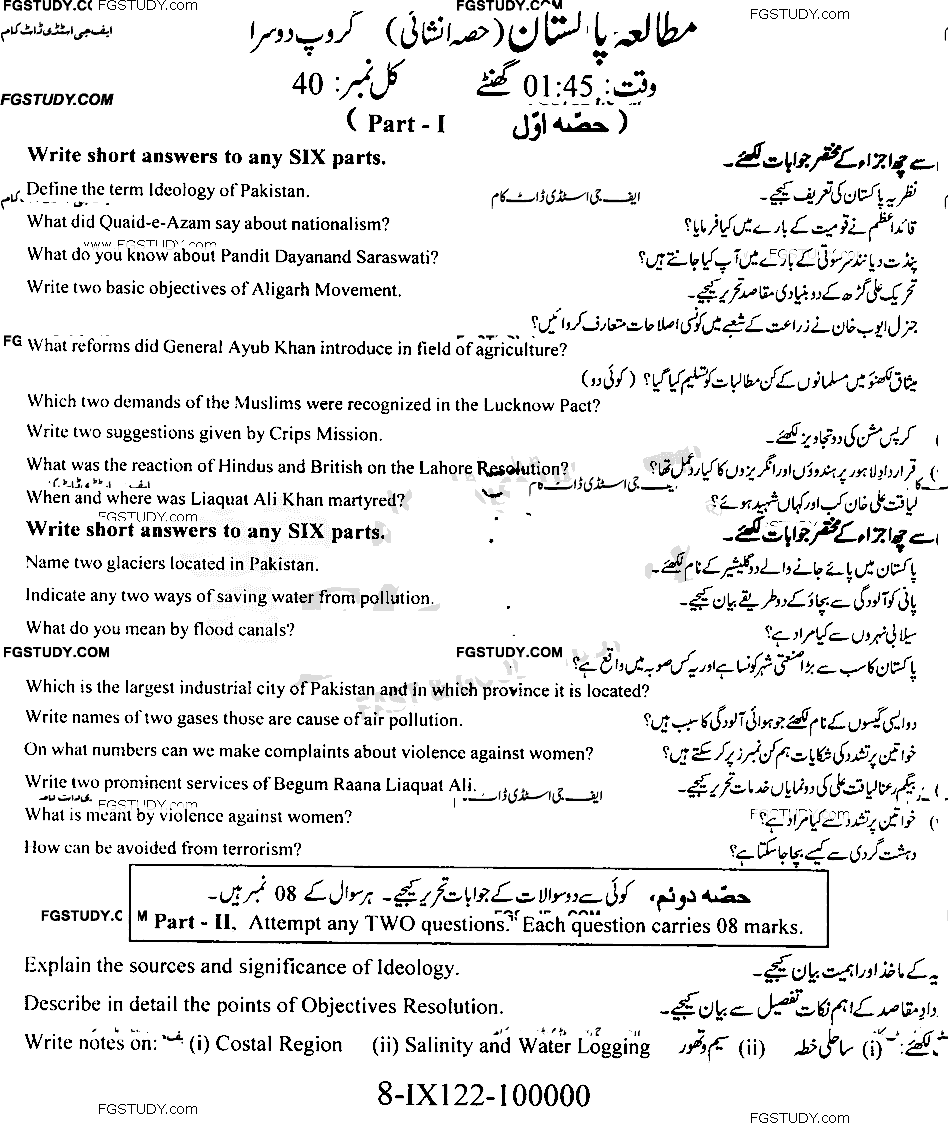 FGSTUDY.COM FGSTUDY.COM FGSTUDY.com
مطالعہ پاکستان (حصہ انشائی) گروپ دوسرا
ایف جی اسٹڈی ڈاٹ کام
وقت: 01:45 گھنٹے کل نمبر: 40
FGSTUDY.COM
( Part - I حصّہ اوّل )
Write short answers to any SIX parts. سے چھ اجزاء کے مختصر جوابات لکھئے۔
Define the term Ideology of Pakistan. ایف جی اسٹڈی ڈاٹ کام نظریہ پاکستان کی تعریف کیجیے۔
What did Quaid-e-Azam say about nationalism? قائداعظم نے قومیت کے بارے میں کیا فرمایا؟
www.FGSTUDY.com
What do you know about Pandit Dayanand Saraswati? پنڈت دیانند سرسوتی کے بارے میں آپ کیا جانتے ہیں؟
Write two basic objectives of Aligarh Movement. تحریک علی گڑھ کے دو بنیادی مقاصد تحریر کیجیے۔
جنرل ایوب خان نے زراعت کے شعبے میں کونسی اصلاحات متعارف کروائیں؟
FG What reforms did General Ayub Khan introduce in field of agriculture?
میثاق لکھنؤ میں مسلمانوں کے کن مطالبات کو تسلیم کیا گیا؟ (کوئی دو)
Which two demands of the Muslims were recognized in the Lucknow Pact?
Write two suggestions given by Crips Mission. کرپس مشن کی دو تجاویز لکھئے۔
What was the reaction of Hindus and British on the Lahore Resolution? قرارداد لاہور پر ہندوؤں اور انگریزوں کا کیا ردعمل تھا؟
ایف جی اسٹڈی ڈاٹ کام
When and where was Liaquat Ali Khan martyred? لیاقت علی خان کب اور کہاں شہید ہوئے؟
FGSTUDY.com
Write short answers to any SIX parts. سے چھ اجزاء کے مختصر جوابات لکھئے۔
Name two glaciers located in Pakistan. پاکستان میں پائے جانے والے دو گلیشیر کے نام لکھئے۔
Indicate any two ways of saving water from pollution. پانی کو آلودگی سے بچاؤ کے دو طریقے بیان کیجیے۔
What do you mean by flood canals? سیلابی نہروں سے کیا مراد ہے؟
FGSTUDY.COM FGSTUDY.COM پاکستان کا سب سے بڑا صنعتی شہر کونسا ہے اور یہ کس صوبہ میں واقع ہے؟
Which is the largest industrial city of Pakistan and in which province it is located?
Write names of two gases those are cause of air pollution. دو ایسی گیسوں کے نام لکھئے جو ہوائی آلودگی کا سبب ہیں؟
On what numbers can we make complaints about violence against women? خواتین پر تشدد کی شکایات ہم کن نمبرز پر کر سکتے ہیں؟
Write two prominent services of Begum Raana Liaquat Ali. ایف جی اسٹڈی ڈاٹ بیگم رعنا لیاقت علی کی دو نمایاں خدمات تحریر کیجیے۔
FGSTUDY.com
What is meant by violence against women? خواتین پر تشدد سے کیا مراد ہے؟
How can be avoided from terrorism? دہشت گردی سے کیسے بچا جا سکتا ہے؟
حصہ دوئم، کوئی سے دو سوالات کے جوابات تحریر کیجیے۔ ہر سوال کے 08 نمبر ہیں۔
FGSTUDY.C M Part - II. Attempt any TWO questions. Each question carries 08 marks.
Explain the sources and significance of Ideology. یہ کے ماخذ اور اہمیت بیان کیجیے۔
Describe in detail the points of Objectives Resolution. داد مقاصد کے اہم نکات تفصیل سے بیان کیجیے۔
Write notes on: (i) Costal Region (ii) Salinity and Water Logging لکھئے: (i) ساحلی خطہ (ii) سیم وتھور
8-IX122-100000
FGSTUDY.com FGSTUDY.com